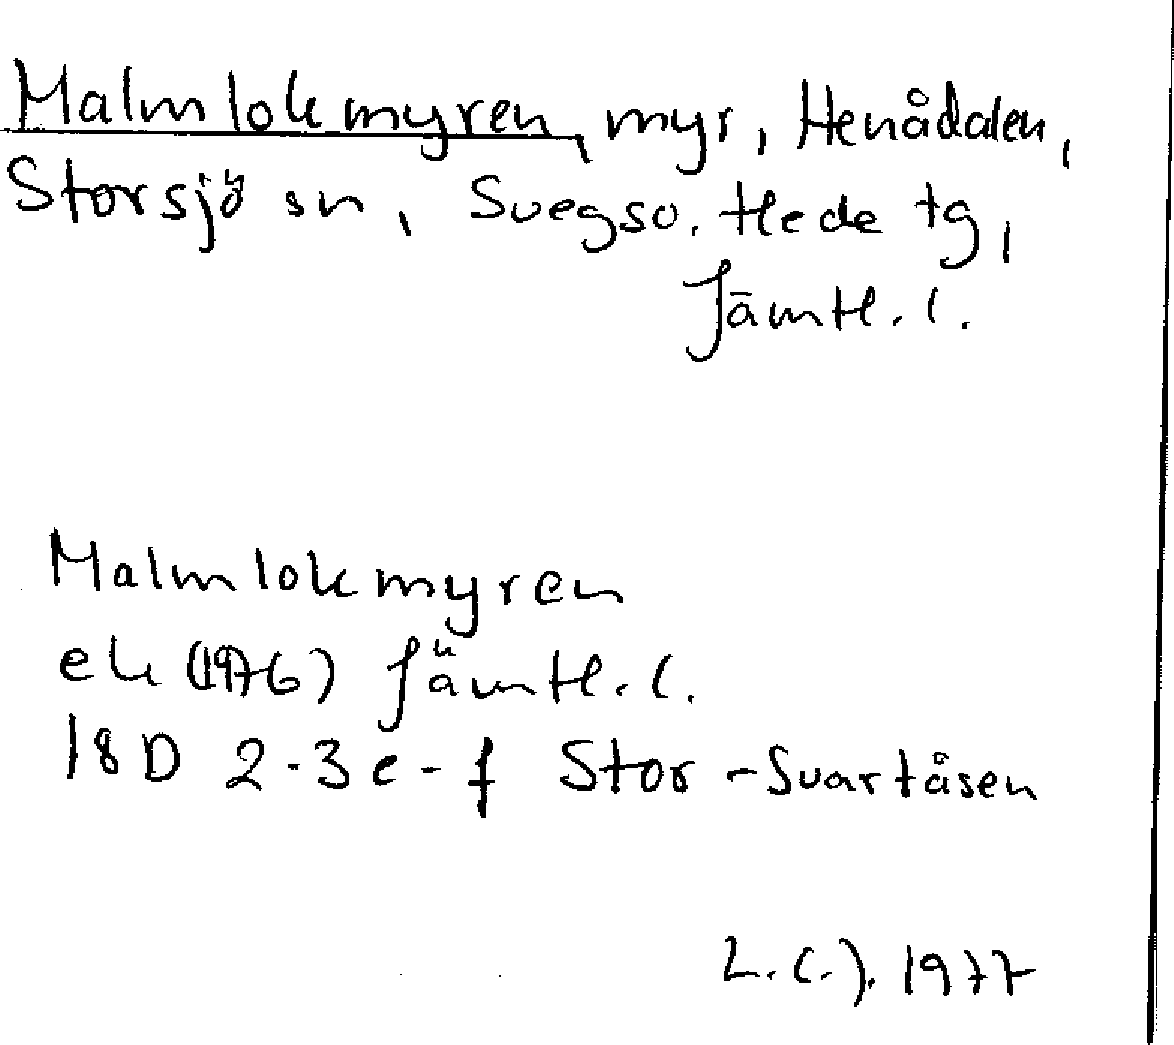 Malmlokmyren, myr, Henådalen,
Storsjö sn, Svegso. Hede tg,
Jämtl. l.
Malmlokmyren
ek (1976) Jämtl. l.
18D 2-3 e-f Stor-Svartåsen
L.C.J. 1977